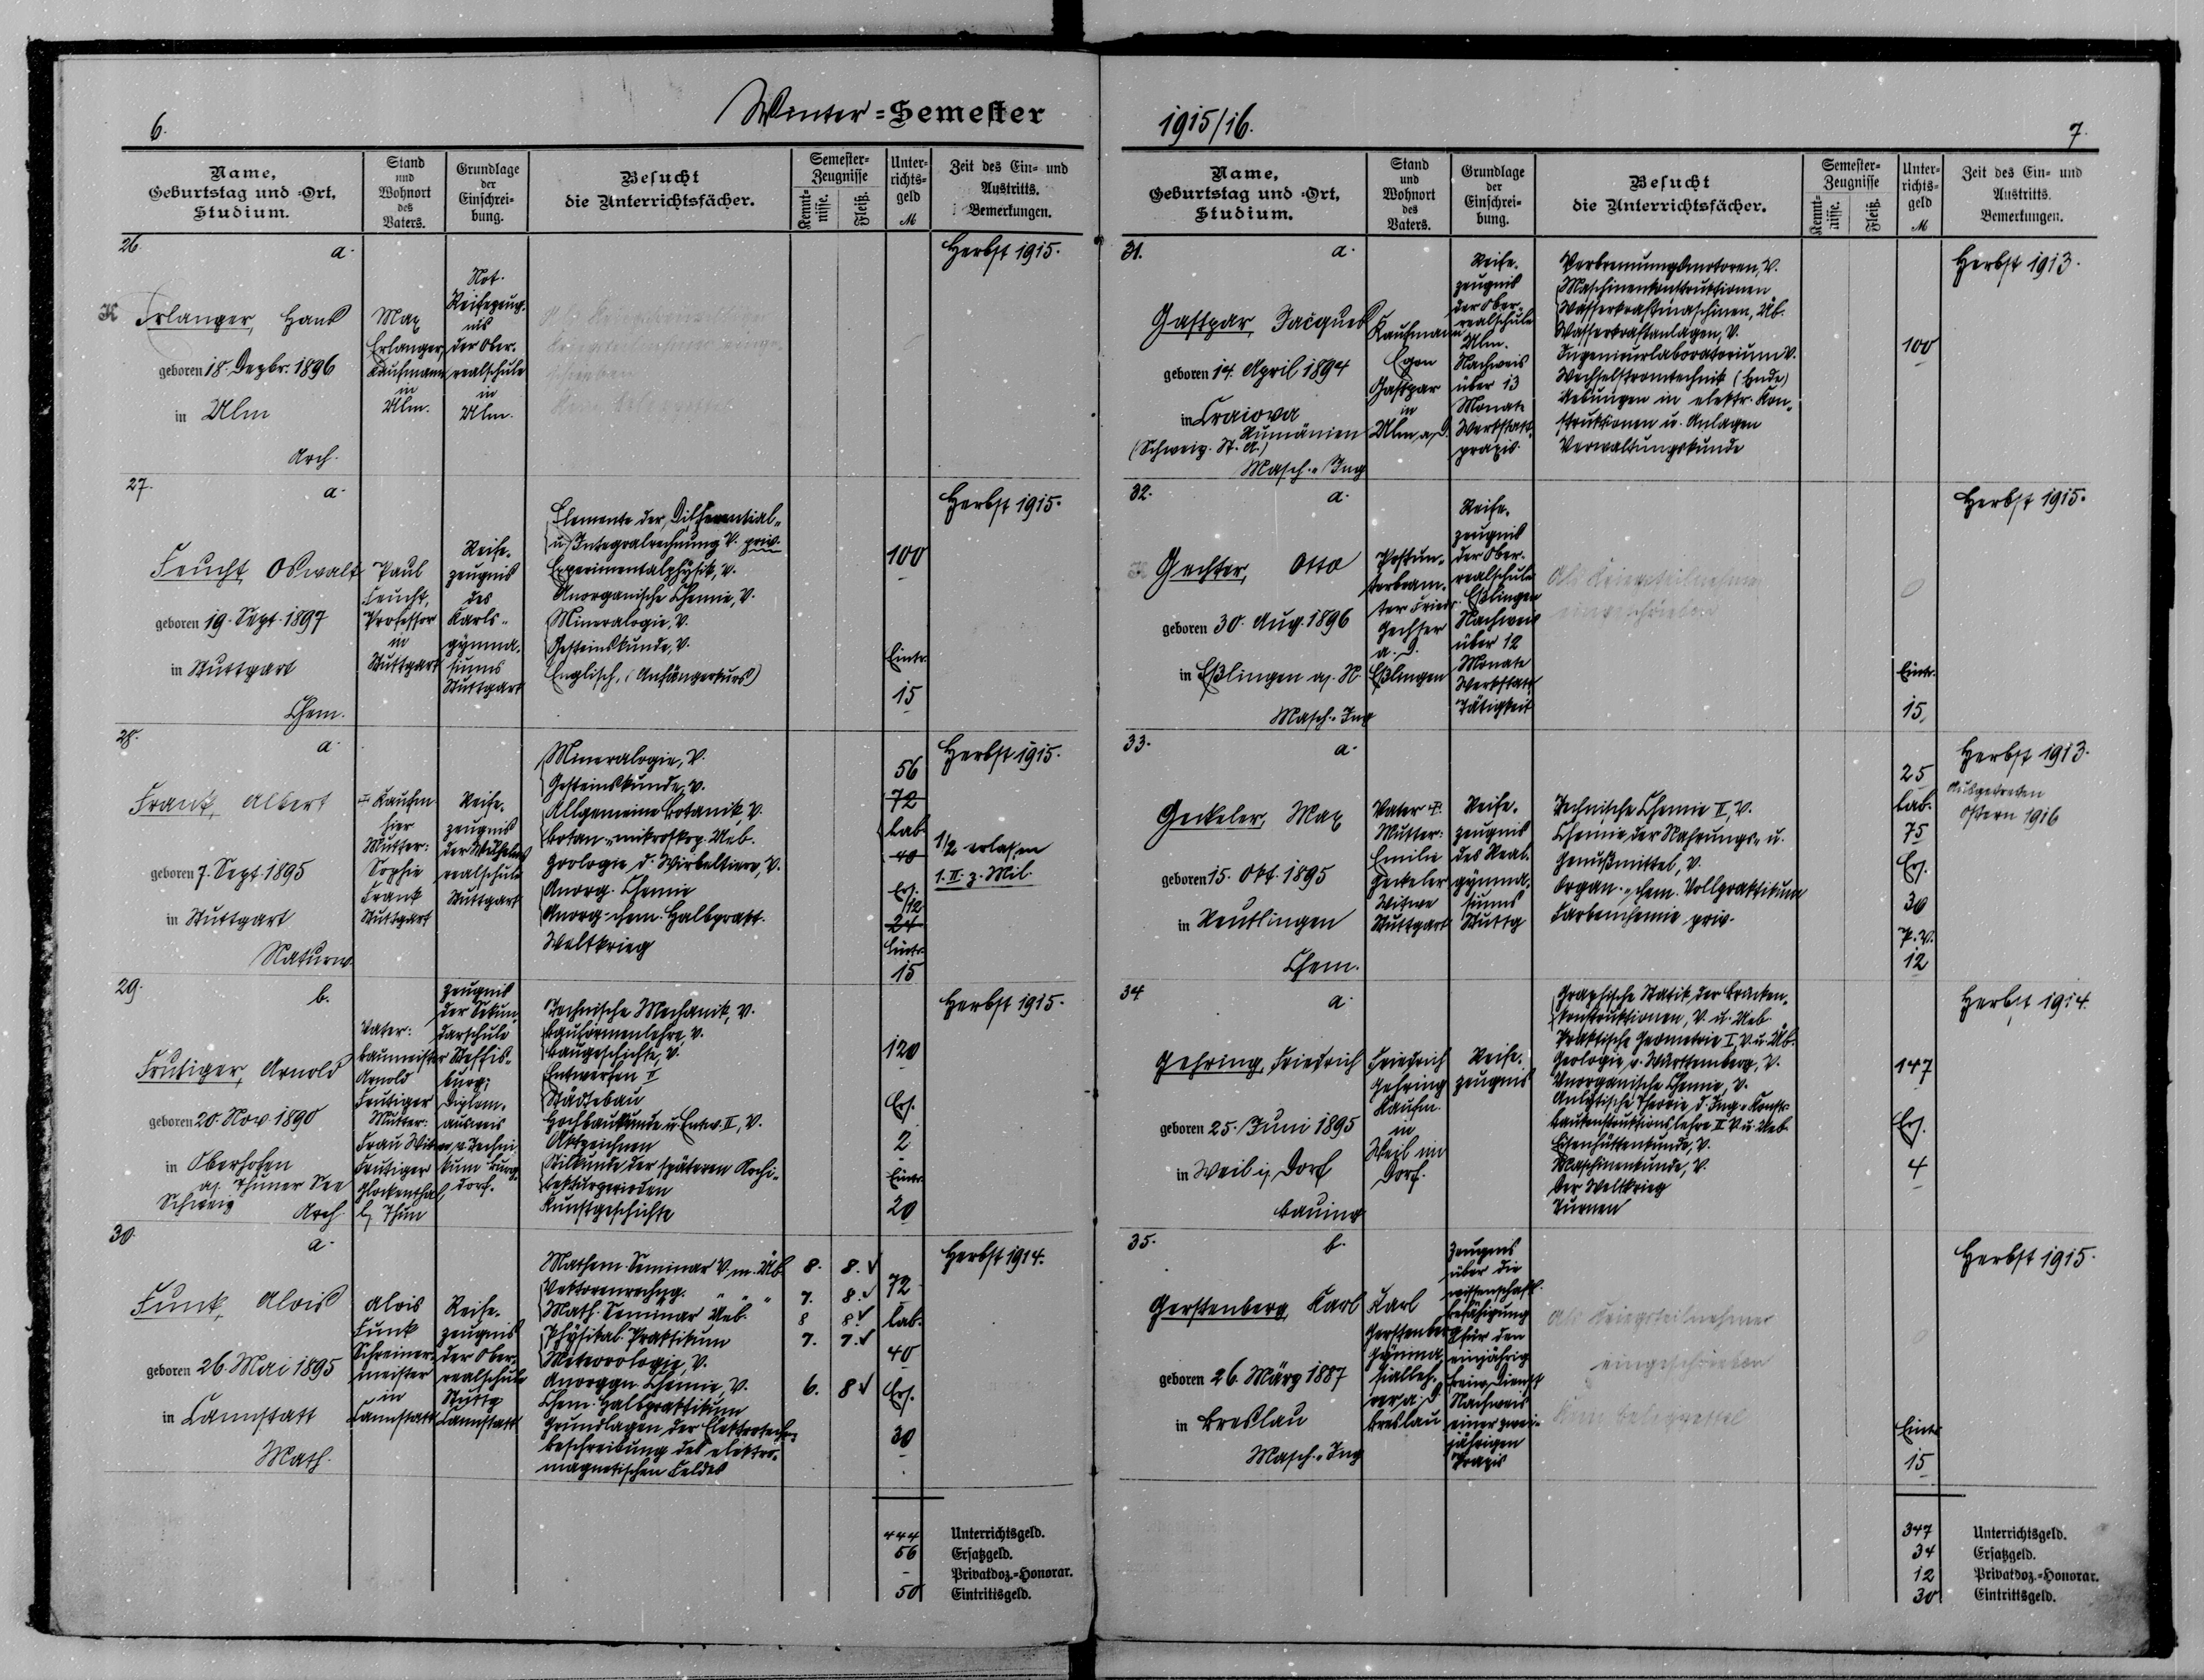 Winter=Semester
6.
Name,
Geburtstag und =Ort,
Studium.
Stand
und
Wohnort
des
Vaters.
Grundlage
der
Einschrei=
bung.
Besucht
die Unterrichtsfächer.
Semester=
Zeugnisse
Kennt=
nisse.
Fleiß.
Unter=
richts=
geld
M
Zeit des Ein= und
Austritts.
Bemerkungen.
26.
a.
K Erlanger, Hans
geboren 18. Dezbr. 1896
in Ulm
Arch.
Max
Erlanger,
Kaufmann
in
Ulm.
Not-
Reifezeug-
nis
der Ober-
realschule
in
Ulm.
Herbst 1915.
27.
a.
Feucht, Oswalt
geboren 19. Sept. 1897
in Stuttgart
Chem.
Paul
Feucht,
Professor
in
Stuttgart
Reife-
zeugnis
des
Karls-
gymna-
siums
Stuttgart
Elemente der Differential-
u. Integralrechnung V. priv.
Experimentalphysik, V.
Anorganische Chemie, V.
Mineralogie, V.
Gesteinskunde, V.
Englisch, (Anfängerkurs)
100
Eintr.
15
Herbst 1915.
28.
a.
Frank, Albert
geboren 7. Sept. 1895
in Stuttgart
Naturw.
Kaufm.
hier
Mutter:
Sophie
Frank
Stuttgart
Reife-
zeugnis
der Wilhelms
realschule
Stuttgart
Mineralogie, V.
Gesteinskunde, V.
Allgemeine Botanik, V.
Botan.-mikroskop. Ueb.
Zoologie d. Wirbeltiere, V.
Anorg. Chemie
Anorg.-chem. Halbprakt.
Weltkrieg
56
72
Lab.
40
Ers.
12
24
Eintr.
15
Herbst 1915.
1/2 erlassen
1. II. z. Mil.
29.
b.
Frutiger, Arnold
geboren 20. Nov. 1890
in Oberhofen
a/. Thuner See
Schweiz
Arch.
Vater:
Baumeister
Arnold
Frutiger
Mutter:
Frau Witwe
Frutiger
Glockenthal
b/ Thun
Zeugnis
der Sekun-
darschule
Steffis-
burg;
Diplom-
ausweis
v. Techni-
kum Burg-
dorf.
Technische Mechanik, V.
Bauformenlehre, V.
Baugeschichte, V.
Entwerfen II
Städtebau
Hochbaukunde u. Entw. II, V.
Aktzeichnen
Stilkunde der späteren Archi-
tekturperioden
Kunstgeschichte
120
Ers.
2
Eintr.
20
Herbst 1915.
30.
a.
Funk, Alois
geboren 26. Mai 1895
in Cannstatt
Math.
Alois
Funk
Schreiner-
meister
in
Cannstatt
Reife-
zeugnis
der Ober-
realschule
Stuttg.
Cannstatt
Mathem. Seminar V. m. Üb. 8. 8. √
Vektorenrechng. " " " 7. 8. √
Math. Seminar Ueb. 8 8 √
Physikal. Praktikum 7. 7. √
Meteorologie, V.
Anorgan. Chemie, V. 6. 8 √
Chem. Halbpraktikum
Grundlagen der Elektrotechn.
Beschreibung des elektro-
magnetischen Feldes
72
Lab.
40
Ers.
30
Herbst 1914.
444 Unterrichtsgeld.
56 Ersatzgeld.
- Privatdoz.=Honorar.
50 Eintrittsgeld.
1915/16.
7.
Name,
Geburtstag und =Ort,
Studium.
Stand
und
Wohnort
des
Vaters.
Grundlage
der
Einschrei=
bung.
Besucht
die Unterrichtsfächer.
Semester=
Zeugnisse
Kennt=
nisse.
Fleiß.
Unter=
richts=
geld
M
Zeit des Ein= und
Austritts.
Bemerkungen.
31.
a.
Gastpar, Jacques
geboren 14. April 1894
in Craiova
Rumänien
(Schweiz. St. A.)
Masch.-Ing
Kaufmann
Egon
Gastpar
in
Ulm a/D.
Reife-
zeugnis
der Ober-
realschule
Ulm.
Nachweis
über 13
Monate
Werkstatt-
praxis
Verbrennungsmotoren, V.
Maschinenkonstruktionen
Wasserkraftmaschinen, Üb.
Wasserkraftanlagen, V.
Ingenieurlaboratorium V.
Wechselstromtechnik (Ende)
Uebungen in elektr. Kon-
struktionen u. Anlagen
Verwaltungskunde
100
Herbst 1913.
32.
a.
K Gechter, Otto
geboren 30. Aug. 1896
in Eßlingen a/. N.
Masch.-Ing
Postun-
terbeam-
ter Friedr.
Gechter
a. D.
Eßlingen
Reife-
zeugnis
der Ober-
realschule
Eßlingen
Nachweis
über 12
Monate
Werkstatt
Tätigkeit
Als Kriegsteilnehmer
eingeschrieben
0
Eintr.
15
Herbst 1915.
33.
a.
Geckeler, Max
geboren 15. Okt. 1895
in Reutlingen
Chem.
Vater †.
Mutter:
Emilie
Geckeler
Witwe
Stuttgart
Reife-
zeugnis
des Real-
gymna-
siums
Stuttg
Technische Chemie II, V.
Chemie der Nahrungs- u.
Genußmittel, V.
Organ.-chem. Vollpraktikum
Farbenchemie priv.
25
Lab.
75
Ers.
30
P. V.
12
Herbst 1913.
Ausgetreten
Ostern 1916
34
a.
Gehring, Friedrich
geboren 25. Juni 1895
in Weil i/. Dorf
Bauing
Friedrich
Gehring
Kaufm.
in
Weil im
Dorf.
Reife-
zeugnis
Graphische Statik der Brücken-
konstruktionen, V. u. Ueb.
Praktische Geometrie I, V. u. Üb.
Geologie v. Württemberg, V.
Anorganische Chemie, V.
Analytische Theorie d. Ing.-Konstr.
Baukonstruktionslehre II V. u. Ueb.
Eisenhüttenkunde, V.
Maschinenkunde, V.
Der Weltkrieg
Turnen
147
Ers.
4
Herbst 1914.
35.
b.
Gerstenberg, Karl
geboren 26. März 1887
in Breslau
Masch.-Ing
Karl
Gerstenberg
Gymna-
sialleh-
rer a. D.
Breslau
Zeugnis
über die
wissenschaftl.
Befähigung
für den
einjährig
freiw. Dienst
Nachweis
einer zwei-
jährigen
Praxis
Als Kriegsteilnehmer
eingeschrieben
Kein Belegzettel
0
Eintr.
15
Herbst 1915.
347 Unterrichtsgeld.
34 Ersatzgeld.
12 Privatdoz.=Honorar.
30 Eintrittsgeld.